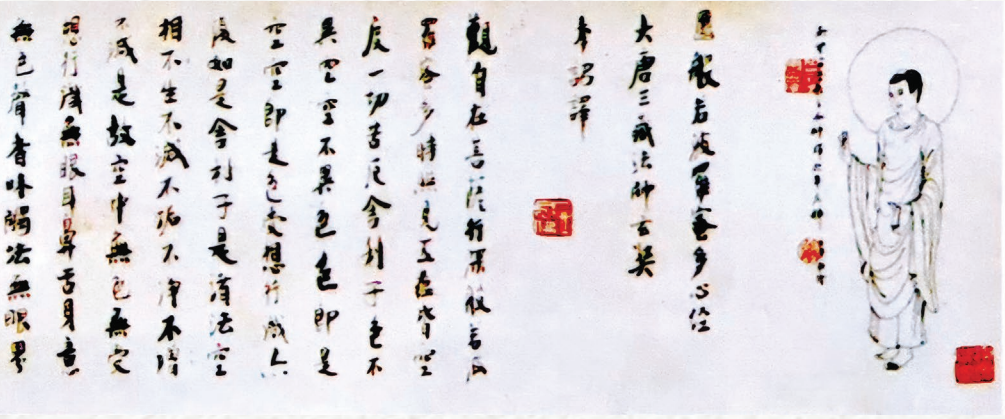 般若波羅蜜多心経
大唐三藏法師玄奘
奉詔譯
觀自在菩薩行深般若波
羅蜜多時照見五蘊皆空
度一切苦厄舍利子色不
異空空不異色色即是
空空即是色受想行識亦
復如是舍利子是諸法空
相不生不滅不垢不淨不增
不減是故空中無色無受
想行識無眼耳鼻舌身意
無色聲香味觸法無眼界